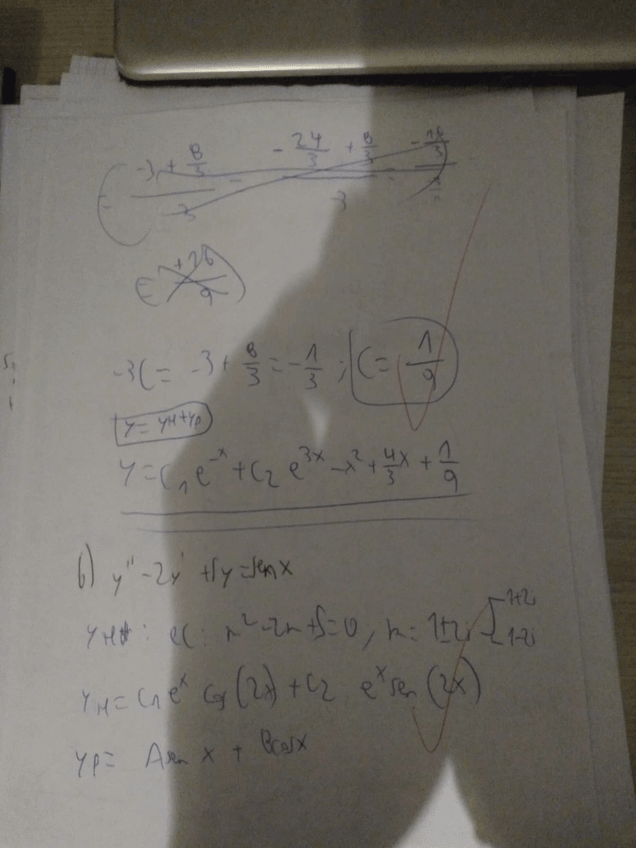 -3 + 8/3 - 24/3 + 8/3
-3C = -3 + 8/3 = -1/3 ; C = 1/9
y = yH + yp
y = C₁ e^-x + C₂ e^3x - x² + 4/3 x + 1/9
b) y'' - 2y' + 5y = sen x
yH : r² - 2r + 5 = 0, r = 1±2i 1+2i 1-2i
yH = C₁ e^x cos (2x) + C₂ e^x sen (2x)
yp = A sen x + B cos x